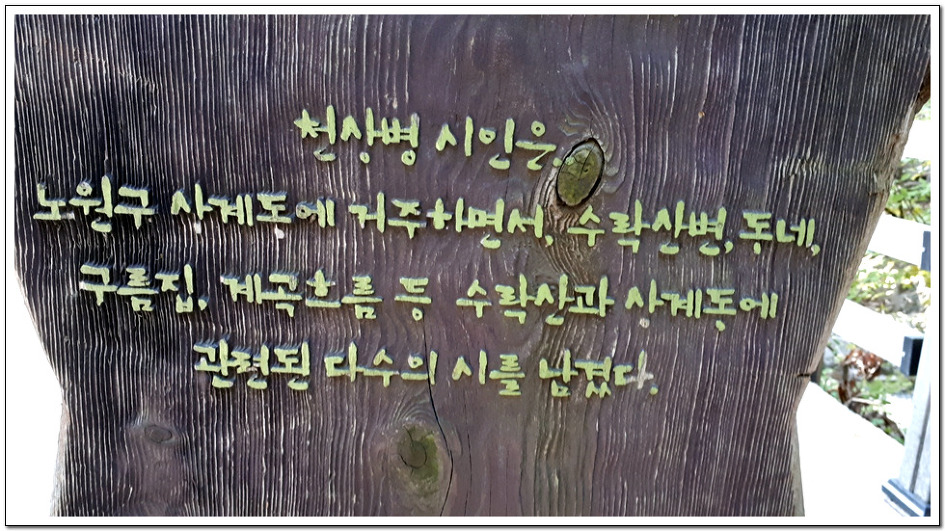 천상병 시인은,
노원구 상계동에 거주하면서, 수락산변, 동네,
구름집, 계곡흐름 등 수락산과 상계동에
관련된 다수의 시를 남겼다.